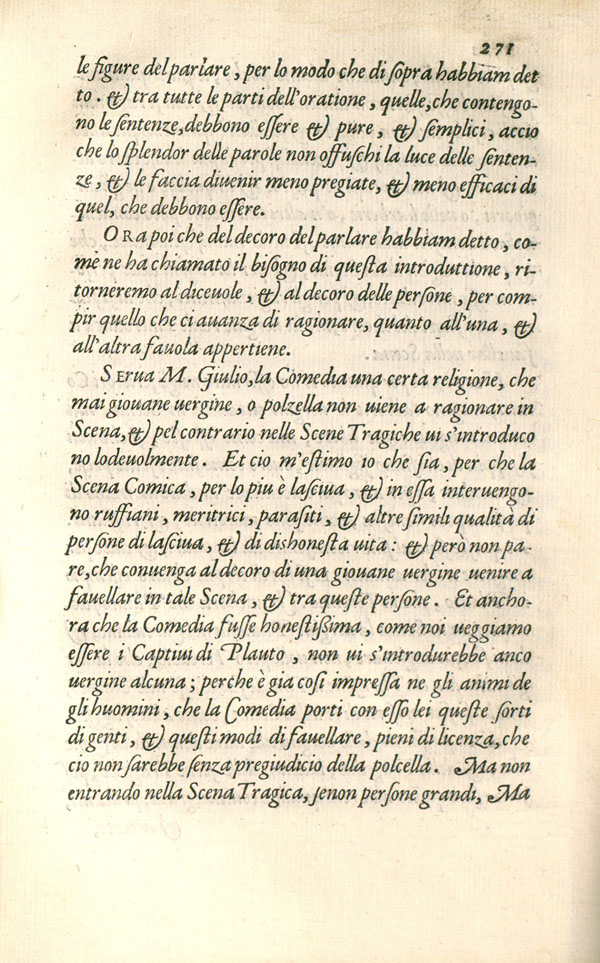 271
le figure del parlare, per lo modo che di sopra habbiam det
to. & tra tutte le parti dell'oratione, quelle, che contengo-
no le sentenze, debbono essere & pure, & semplici, accio
che lo splendor delle parole non offuschi la luce delle senten-
ze, & le faccia diuenir meno pregiate, & meno efficaci di
quel, che debbono essere.
ORA poi che del decoro del parlare habbiam detto, co-
me ne ha chiamato il bisogno di questa introduttione, ri-
torneremo al diceuole, & al decoro delle persone, per com-
pir quello che ci auanza di ragionare, quanto all'una, &
all'altra fauola appertiene.
SERUA M. Giulio, la Comedia una certa religione, che
mai giouane uergine, o polzella non uiene a ragionare in
Scena, & pel contrario nelle Scene Tragiche ui s'introduco
no lodeuolmente. Et cio m'estimo io che sia, per che la
Scena Comica, per lo piu è lasciua, & in essa interuengo-
no ruffiani, meritrici, parasiti, & altre simili qualità di
persone di lasciua, & di dishonesta uita: & però non pa-
re, che conuenga al decoro di una giouane uergine uenire a
fauellare in tale Scena, & tra queste persone. Et ancho-
ra che la Comedia fusse honestißima, come noi ueggiamo
essere i Captiui di Plauto, non ui s'introdurebbe anco
uergine alcuna; perche è gia cosi impressa ne gli animi de
gli huomini, che la Comedia porti con esso lei queste sorti
di genti, & questi modi di fauellare, pieni di licenza, che
cio non sarebbe senza pregiudicio della polcella. Ma non
entrando nella Scena Tragica, senon persone grandi, Ma